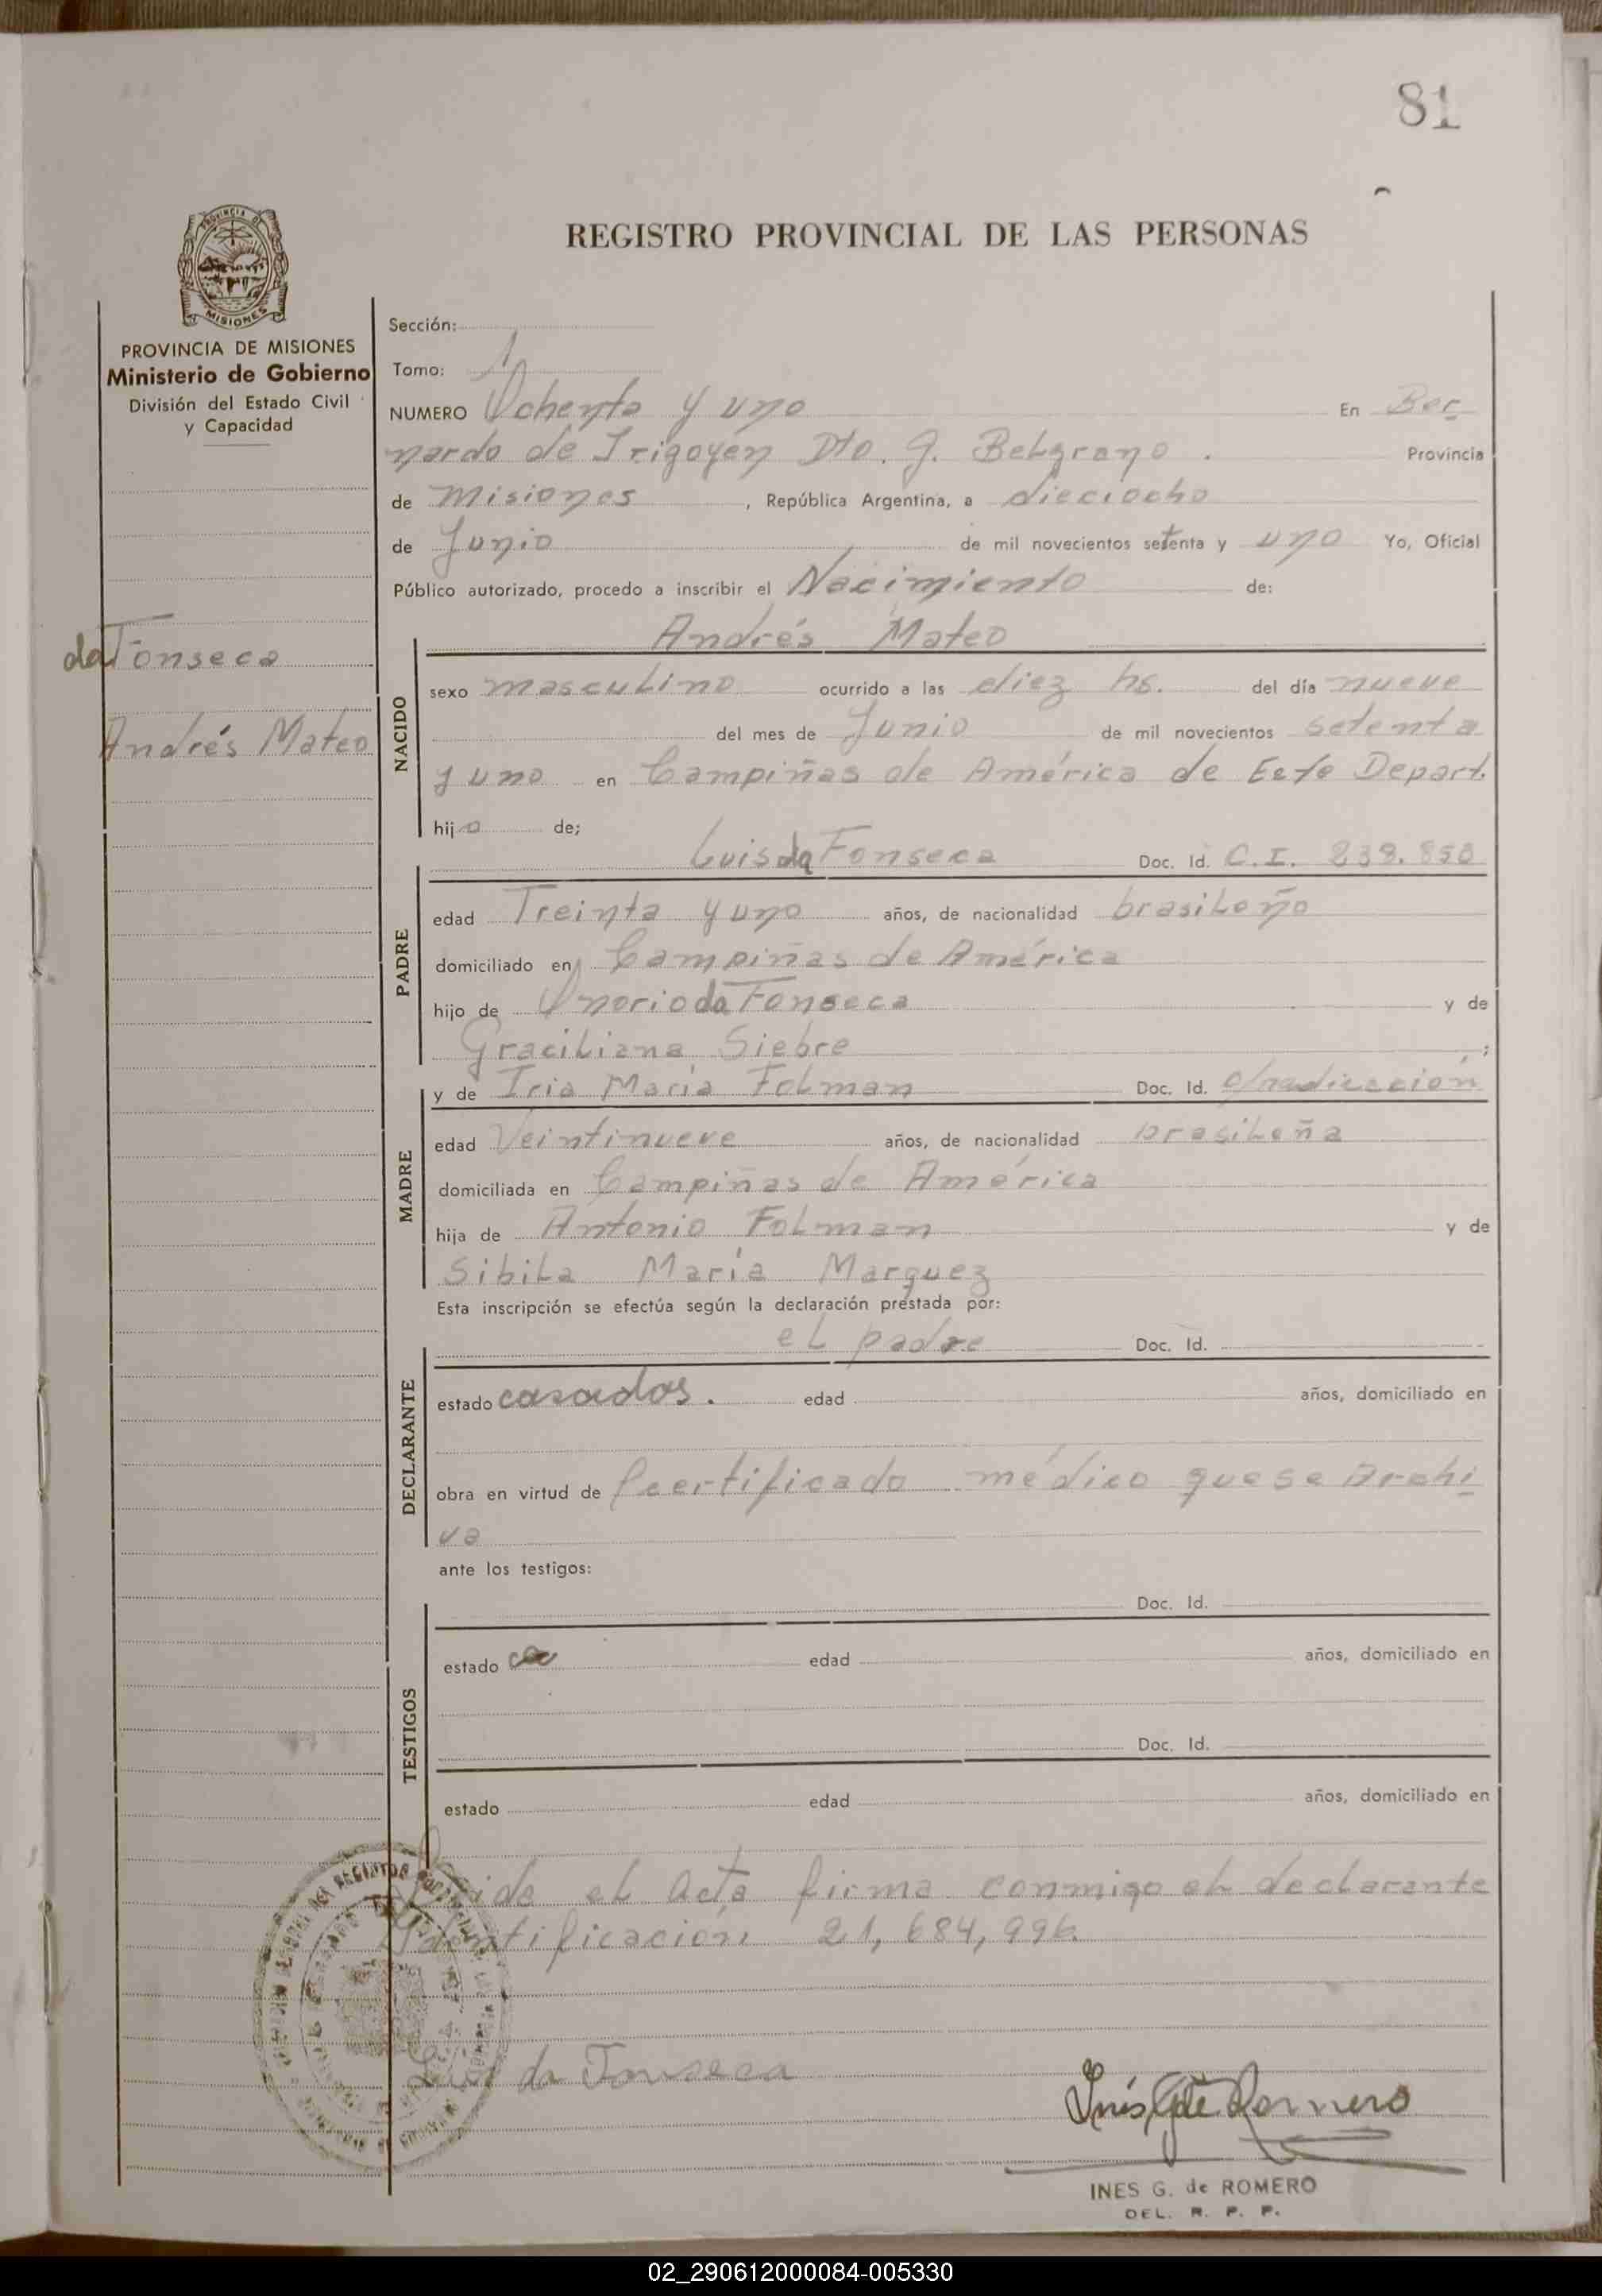 81
REGISTRO PROVINCIAL DE LAS PERSONAS
PROVINCIA DE
MISIONES
PROVINCIA DE MISIONES
Ministerio de Gobierno
División del Estado Civil
y Capacidad
da Fonseca
Andrés Mateo
Sección:
Tomo: 1
NUMERO Ochenta y uno En Ber
nardo de Irigoyen Dto. G. Belgrano . Provincia
de Misiones , República Argentina, a dieciocho
de Junio de mil novecientos setenta y uno Yo, Oficial
Público autorizado, procedo a inscribir el Nacimiento de:
Andrés Mateo
NACIDO
sexo masculino ocurrido a las diez hs. del día nueve
del mes de Junio de mil novecientos setenta
y uno en Campiñas de América de Este Depart.
hijo de;
Luis da Fonseca Doc. Id. C.I. 239.850
PADRE
edad Treinta y uno años, de nacionalidad brasileño
domiciliado en Campiñas de América
hijo de Onorio da Fonseca y de
Graciliana Siebre ;
y de Iria María Folman Doc. Id. c/radicación
MADRE
edad Veintinueve años, de nacionalidad brasileña
domiciliada en Campiñas de América
hija de Antonio Folman y de
Sibila María Marquez
Esta inscripción se efectúa según la declaración prestada por:
el padre Doc. Id.
DECLARANTE
estado casados. edad años, domiciliado en
obra en virtud de Ccertificado médico que se Archi
va
ante los testigos:
Doc. Id.
TESTIGOS
estado edad años, domiciliado en
Doc. Id.
estado edad años, domiciliado en
Leida el Acta firma conmigo el declarante
Identificación 21,684,996.
Luis da Fonseca
Inés G de Romero
INES G. de ROMERO
DEL. R. P. P.
02_290612000084-005330